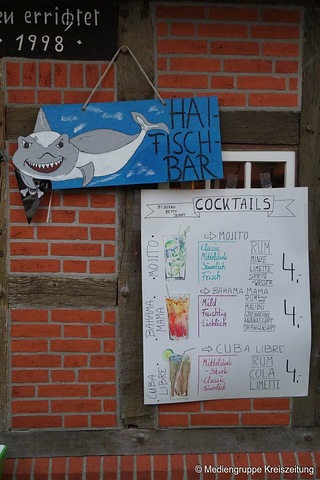 en errichtet
· 1998 ·
HAI-
FISCH-
BAR
COCKTAILS
MOJITO
⇨ MOJITO
Classic
Mittelstark
Säuerlich
Frisch
RUM
MINZE
LIMETTE
SPRITE
WASSER
4,-
BAHAMA
MAMA
⇨ BAHAMA MAMA
Mild
Fruchtig
Lieblich
RUM
MALIBU
GRENADINE
ANANASSAFT
ORANGENSAFT
4,-
CUBA
LIBRE
⇨ CUBA LIBRE
Mittelstark
- Stark
Classic
Säuerlich
RUM
COLA
LIMETTE
4,-
© Mediengruppe Kreiszeitung